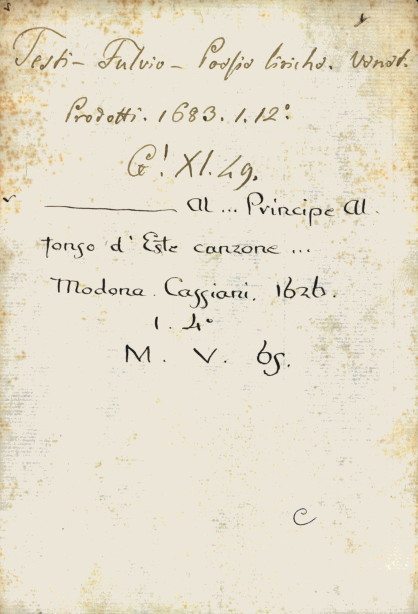 Testi - Fulvio - Poesie liriche. Venet.
Prodotti. 1683. 1. 12°
G! XI. 49.
Al ... Principe Al
fonso d' Este canzone ...
Modona. Cassiani. 1626.
1. 4°
M. V. 65.
C